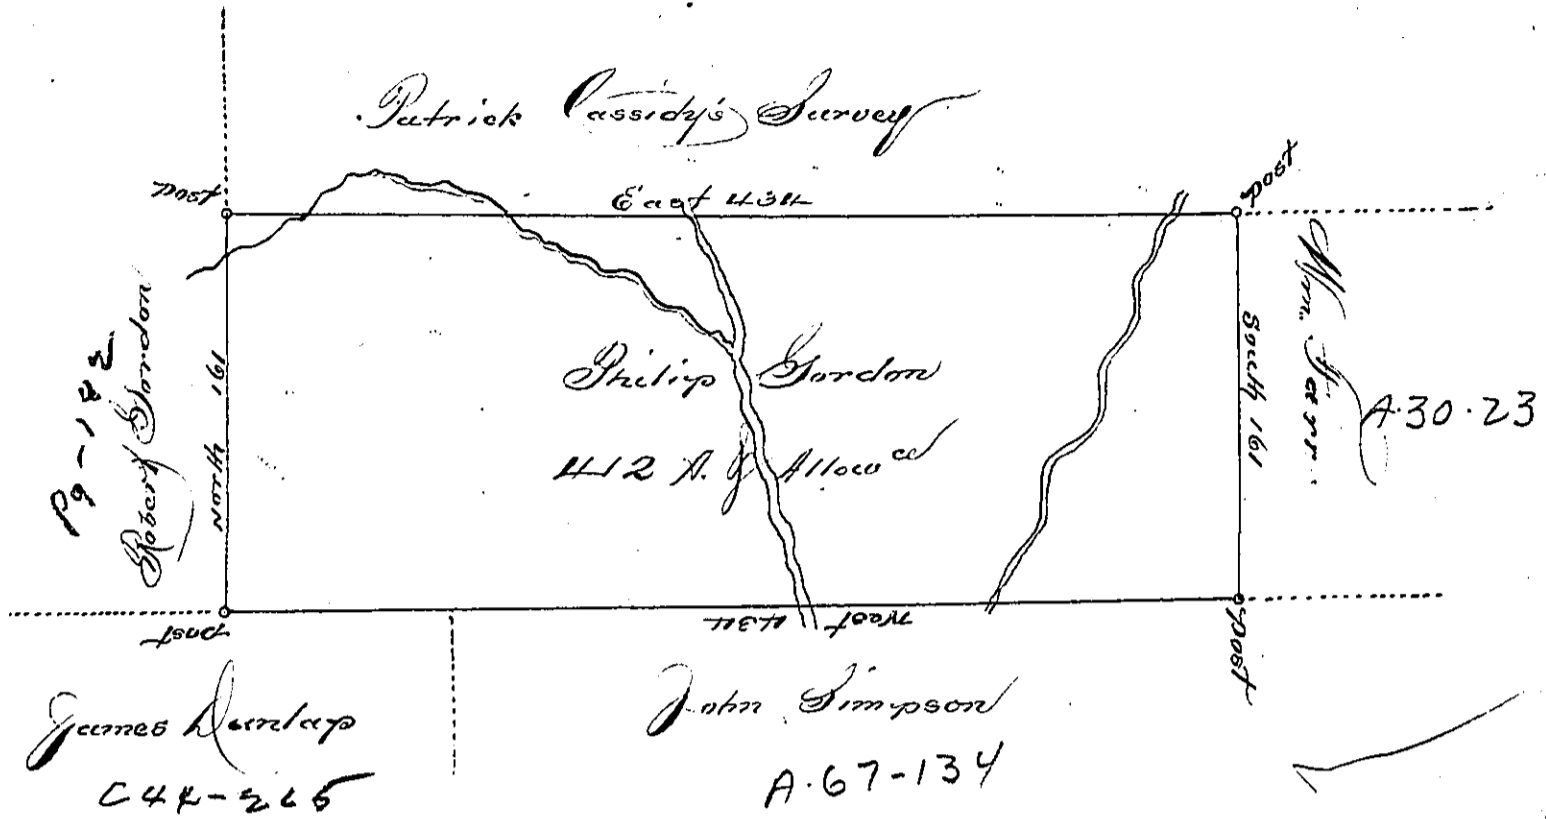 Patrick Cassidy's Survey
post
East 434
post
Pg-182
Robert Gordon
North 161
Philip Gordon
412 A. & Allowce
South 161
Wm. Farr
A.30.23
post
West 434
post
James Dunlap
John Simpson
A.67-134